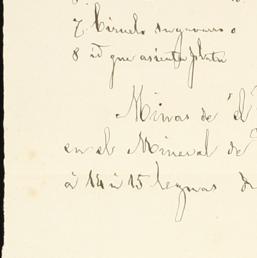 7 Ciruelo
8 id que asienta plata
Minas de "d
en el Mineral de
à 14 à 15 leguas de